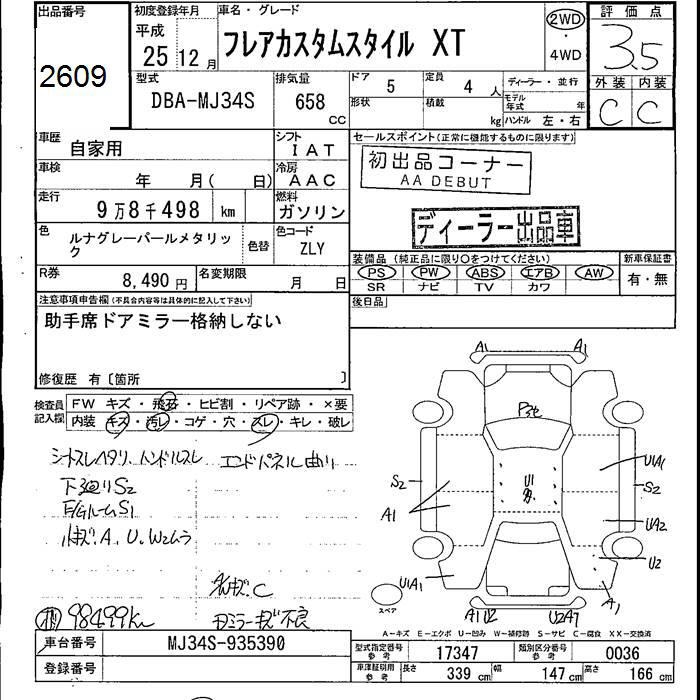 出品番号
2609
初度登録年月
平成
25 12月
車名・グレード
フレアカスタムスタイル XT
2WD
・
4WD
評価点
3.5
外装 内装
C C
型式
DBA-MJ34S
排気量
658
CC
ドア 5
定員 4 人
ディーラー・並行
形状
積載
kg
モデル年式 年
ハンドル 左・右
車歴
自家用
シフト
IAT
車検
年 月( 日)
冷房
AAC
走行
9万8千498 km
燃料
ガソリン
色
ルナグレーパールメタリック
色替
色コード
ZLY
R券
8,490 円
名変期限
月 日
セールスポイント(正常に機能するものに限ります)
初出品コーナー
AA DEBUT
ディーラー出品車
装備品(純正品に限り○をつけてください)
新車保証書
PS PW ABS エアB AW
SR ナビ TV カワ
有・無
後日品
注意事項申告欄(不具合内容等は具体的に記入して下さい)
助手席ドアミラー格納しない
修復歴 有〔箇所 〕
検査員
記入欄
FW キズ・飛石・ヒビ割・リペア跡・×要
内装 キズ・汚レ・コゲ・穴・スレ・キレ・破レ
シートスレヘタリ、ハンドルスレ
エンドパネル曲り
下廻りS2
ルームS1
小キズ.A、U、W2ムラ
C
ミラーキズ不良
98499km
A1 A1
P3セ
U1
U1A1
S2
S2
A1
UA2
U2
U1A1
A1
スペア
A1U2 U2A1
A-キズ E-エクボ U-凹み W-補修跡 S-サビ C-腐食 XX-交換済
車台番号
MJ34S-935390
登録番号
型式指定番号
参考
17347
類別区分番号
参考
0036
車庫証明用
参考
長さ 339 cm
幅 147 cm
高さ 166 cm